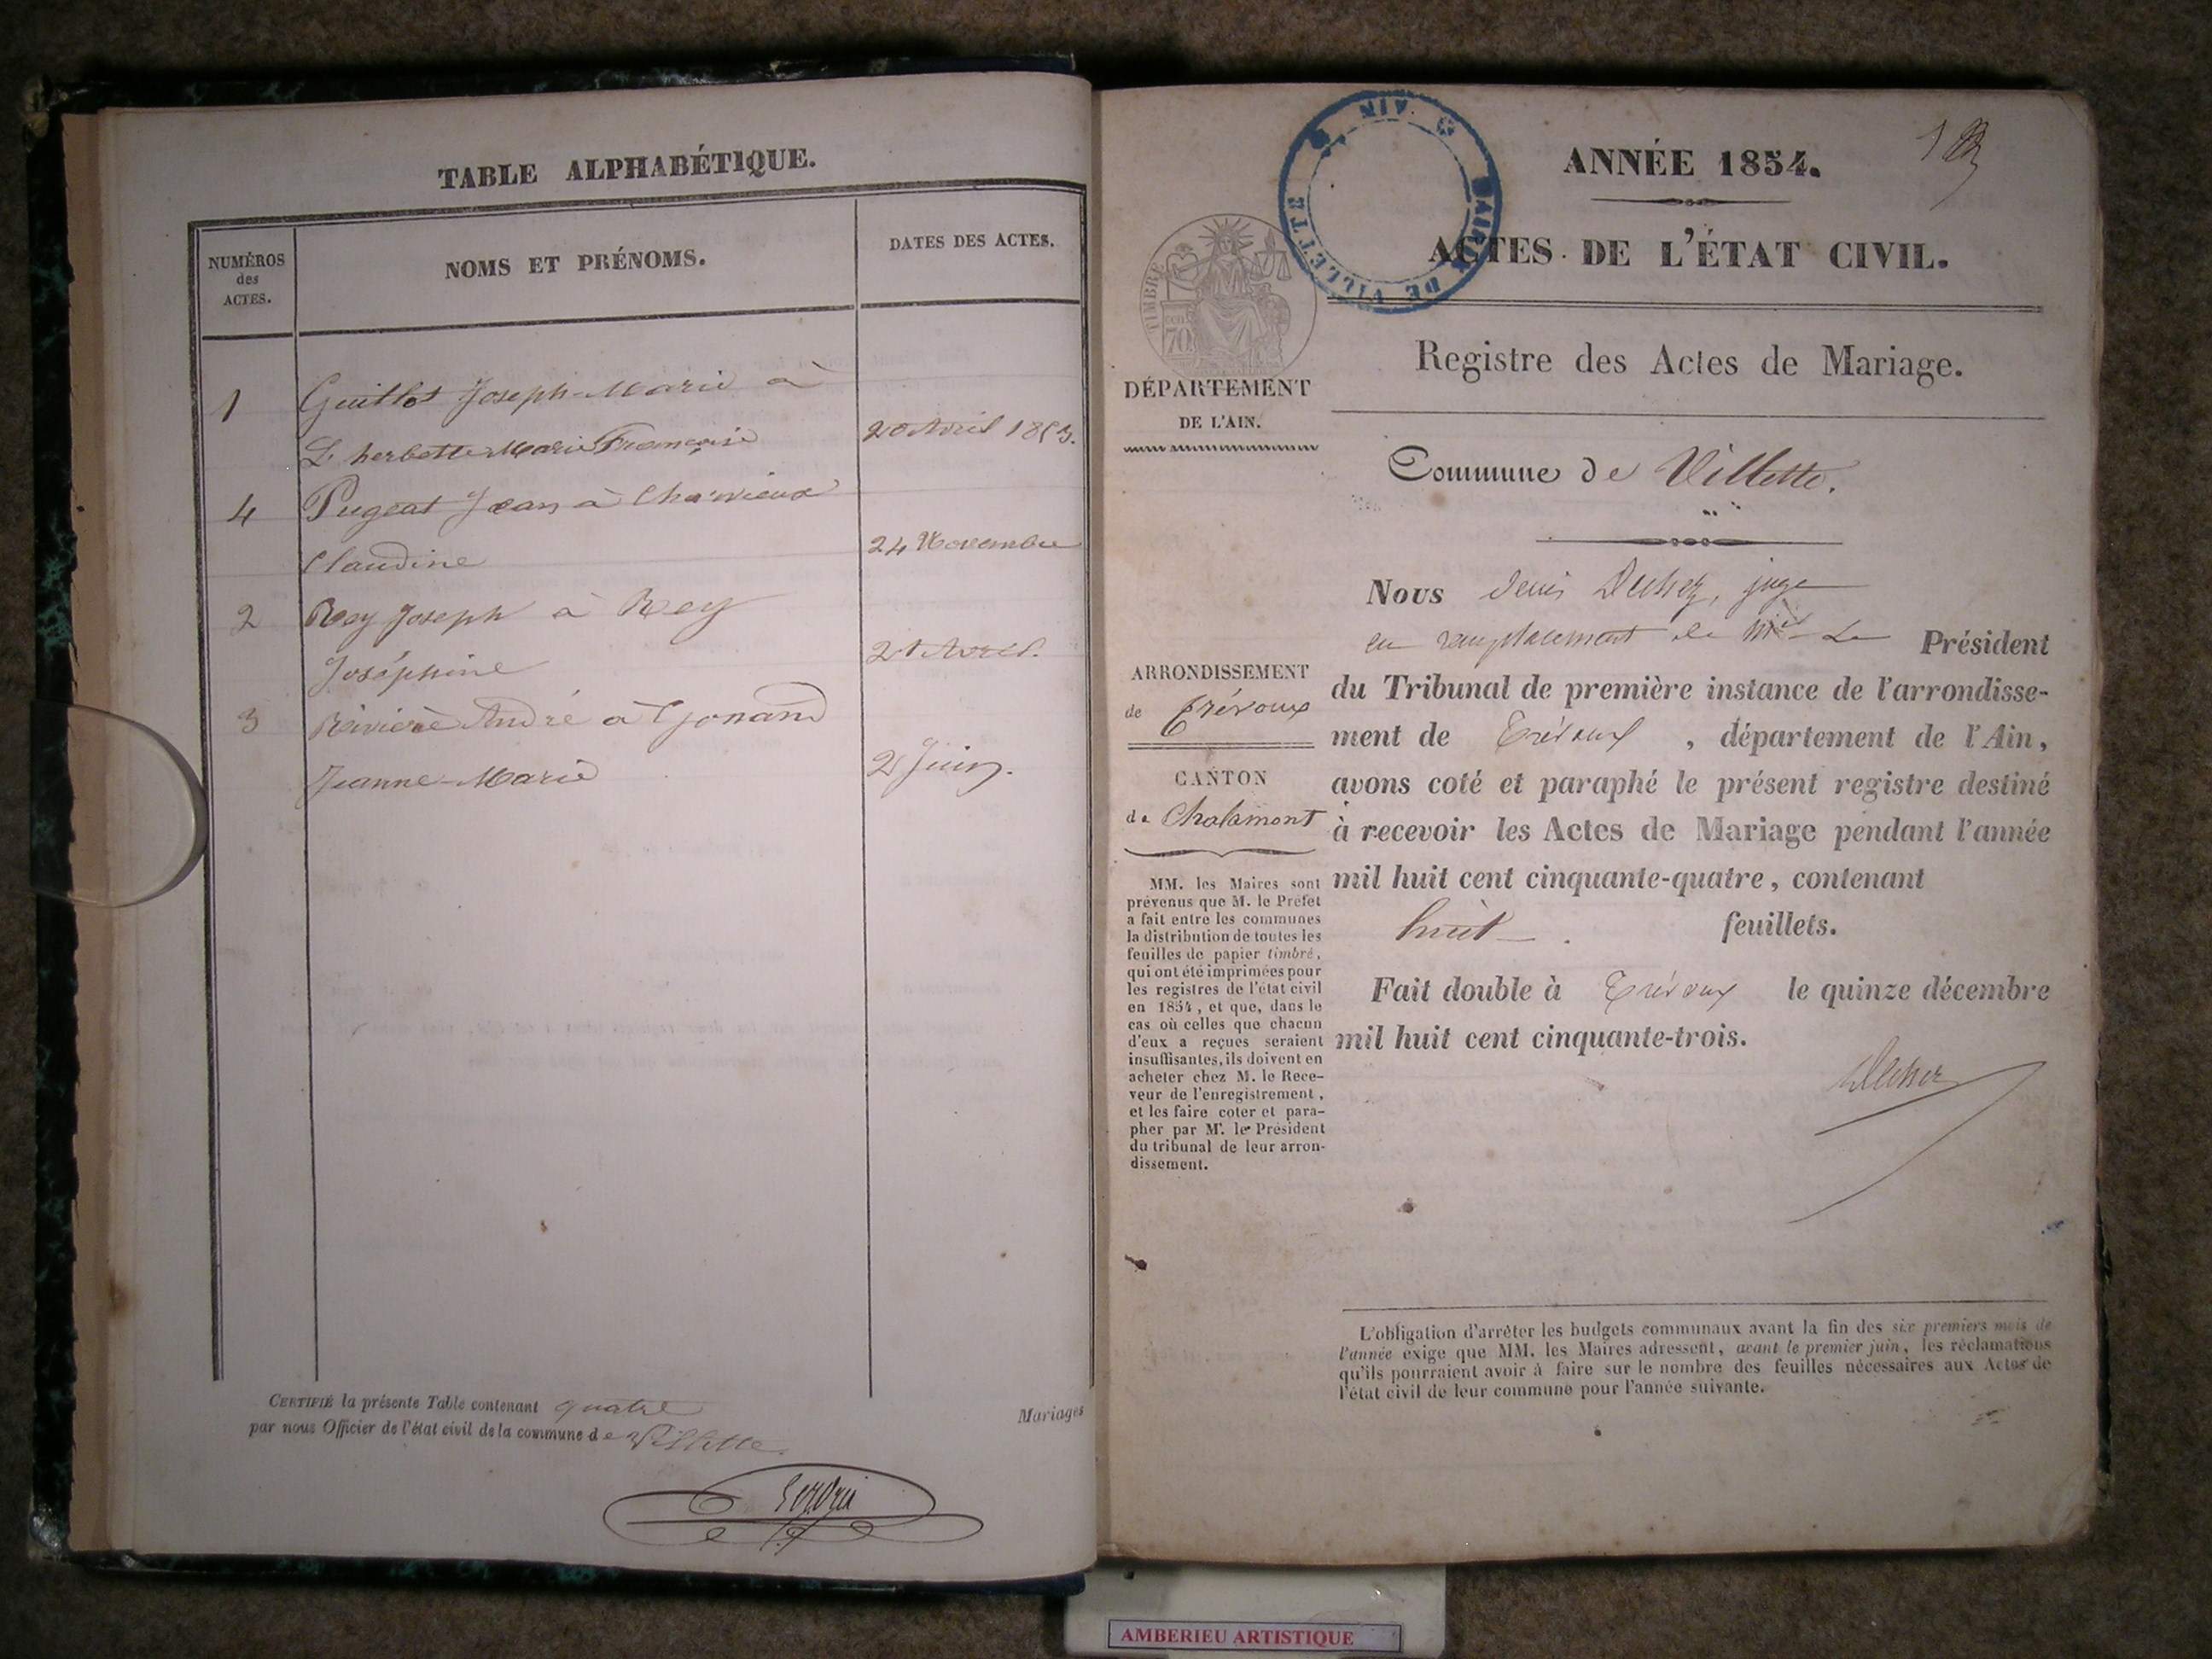 TABLE ALPHABÉTIQUE.
NUMÉROS
des
ACTES.
NOMS ET PRÉNOMS.
DATES DES ACTES.
1 Guillot Joseph-Marie à
L'herbette Marie Françoise 20 Avril 1853.
4 Pugeat Jean à Charvieux
Claudine 24 Novembre
2 Rey Joseph à Rey
Joséphine 21 Avril.
3 Rivière André à Gonand
Jeanne-Marie 2 Juin.
CERTIFIÉ la présente Table contenant quatre Mariages
par nous Officier de l'état civil de la commune de Villette.
MAIRIE DE VILLETTE
AIN
ANNÉE 1854.
ACTES DE L'ÉTAT CIVIL.
TIMBRE
70
Registre des Actes de Mariage.
DÉPARTEMENT
DE L'AIN.
Commune de Villette.
ARRONDISSEMENT
de Trévoux
CANTON
de Chalamont
MM. les Maires sont
prévenus que M. le Préfet
a fait entre les communes
la distribution de toutes les
feuilles de papier timbré,
qui ont été imprimées pour
les registres de l'état civil
en 1854, et que, dans le
cas où celles que chacun
d'eux a reçues seraient
insuffisantes, ils doivent en
acheter chez M. le Rece-
veur de l'enregistrement,
et les faire coter et para-
pher par Mr. le Président
du tribunal de leur arron-
dissement.
Nous Denis Duchez, juge
en remplacement de Mr Le Président
du Tribunal de première instance de l'arrondisse-
ment de Trévoux , département de l'Ain,
avons coté et paraphé le présent registre destiné
à recevoir les Actes de Mariage pendant l'année
mil huit cent cinquante-quatre, contenant
huit feuillets.
Fait double à Trévoux le quinze décembre
mil huit cent cinquante-trois.
L'obligation d'arrêter les budgets communaux avant la fin des six premiers mois de
l'année exige que MM. les Maires adressent, avant le premier juin, les réclamations
qu'ils pourraient avoir à faire sur le nombre des feuilles nécessaires aux Actes de
l'état civil de leur commune pour l'année suivante.
AMBERIEU ARTISTIQUE